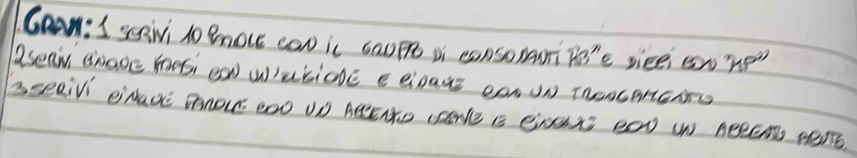 GRAM: 1 SCRIVI 10 PAROLE CON IL GRUPPO DI CONSONANTI "MB" E DIECI CON "MP"
2 SCRIVI CINQUE CON UN'ELISIONE E CINQUE CON UN TRONCAMENTO
3 SCRIVI CINQUE PAROLE CON UN ACCENTO GRAVE E CINQUE CON UN ACCENTO ACUTO.